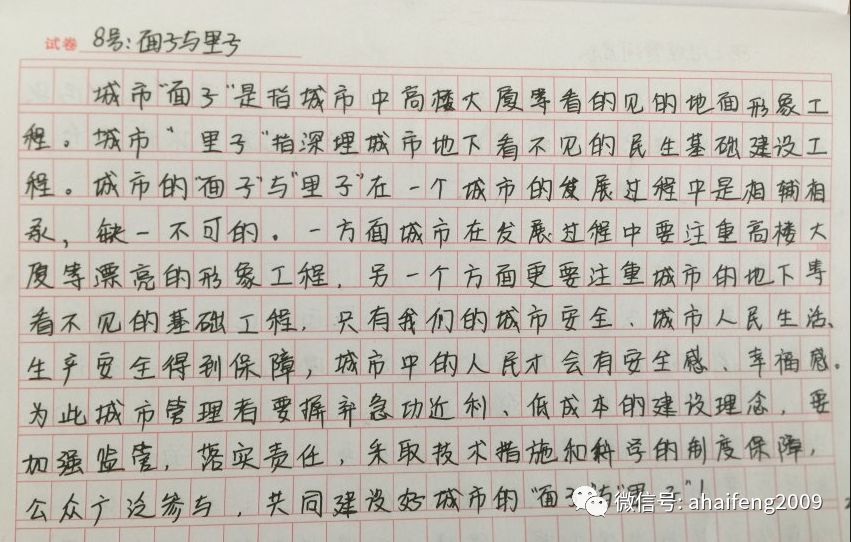 试卷 8号：面子与里子
城市"面子"是指城市中高楼大厦等看的见的地面形象工
程。城市"里子"指深埋城市地下看不见的民生基础建设工
程。城市的"面子"与"里子"在一个城市的发展过程中是相辅相
承，缺一不可的。一方面城市在发展过程中要注重高楼大
厦等漂亮的形象工程，另一个方面更要注重城市的地下等
看不见的基础工程，只有我们的城市安全、城市人民生活、
生产安全得到保障，城市中的人民才会有安全感、幸福感。
为此城市管理者要摒弃急功近利、低成本的建设理念，要
加强监管，落实责任，采取技术措施和科学的制度保障，
公众广泛参与，共同建设好城市的"面子"与"里子"！
微信号: ahaifeng2009